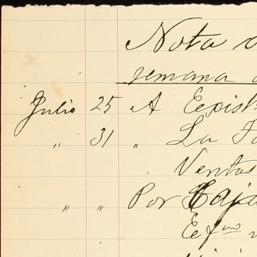 Nota d
semana d
Julio 25 A Eepist
" 31 " La Fa
Ventas
" " Por Caja
Eefmo